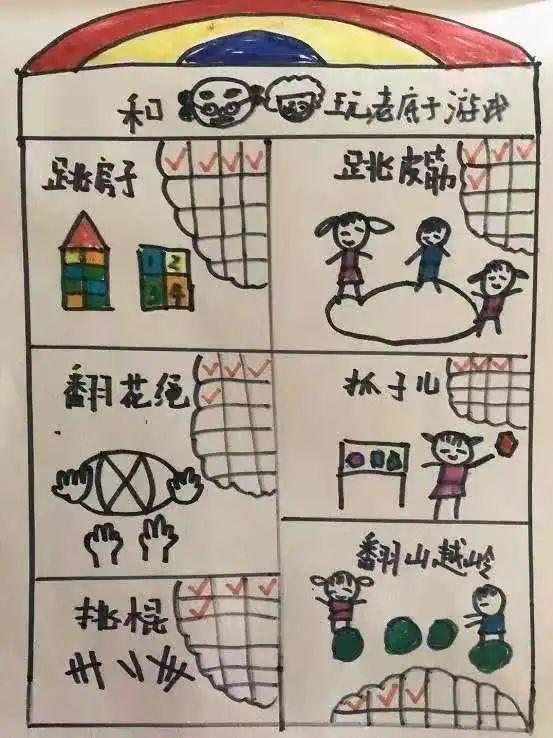 和玩老底子游戏
跳房子
1 2
3 4
跳皮筋
翻花绳
抓子儿
挑棍
翻山越岭